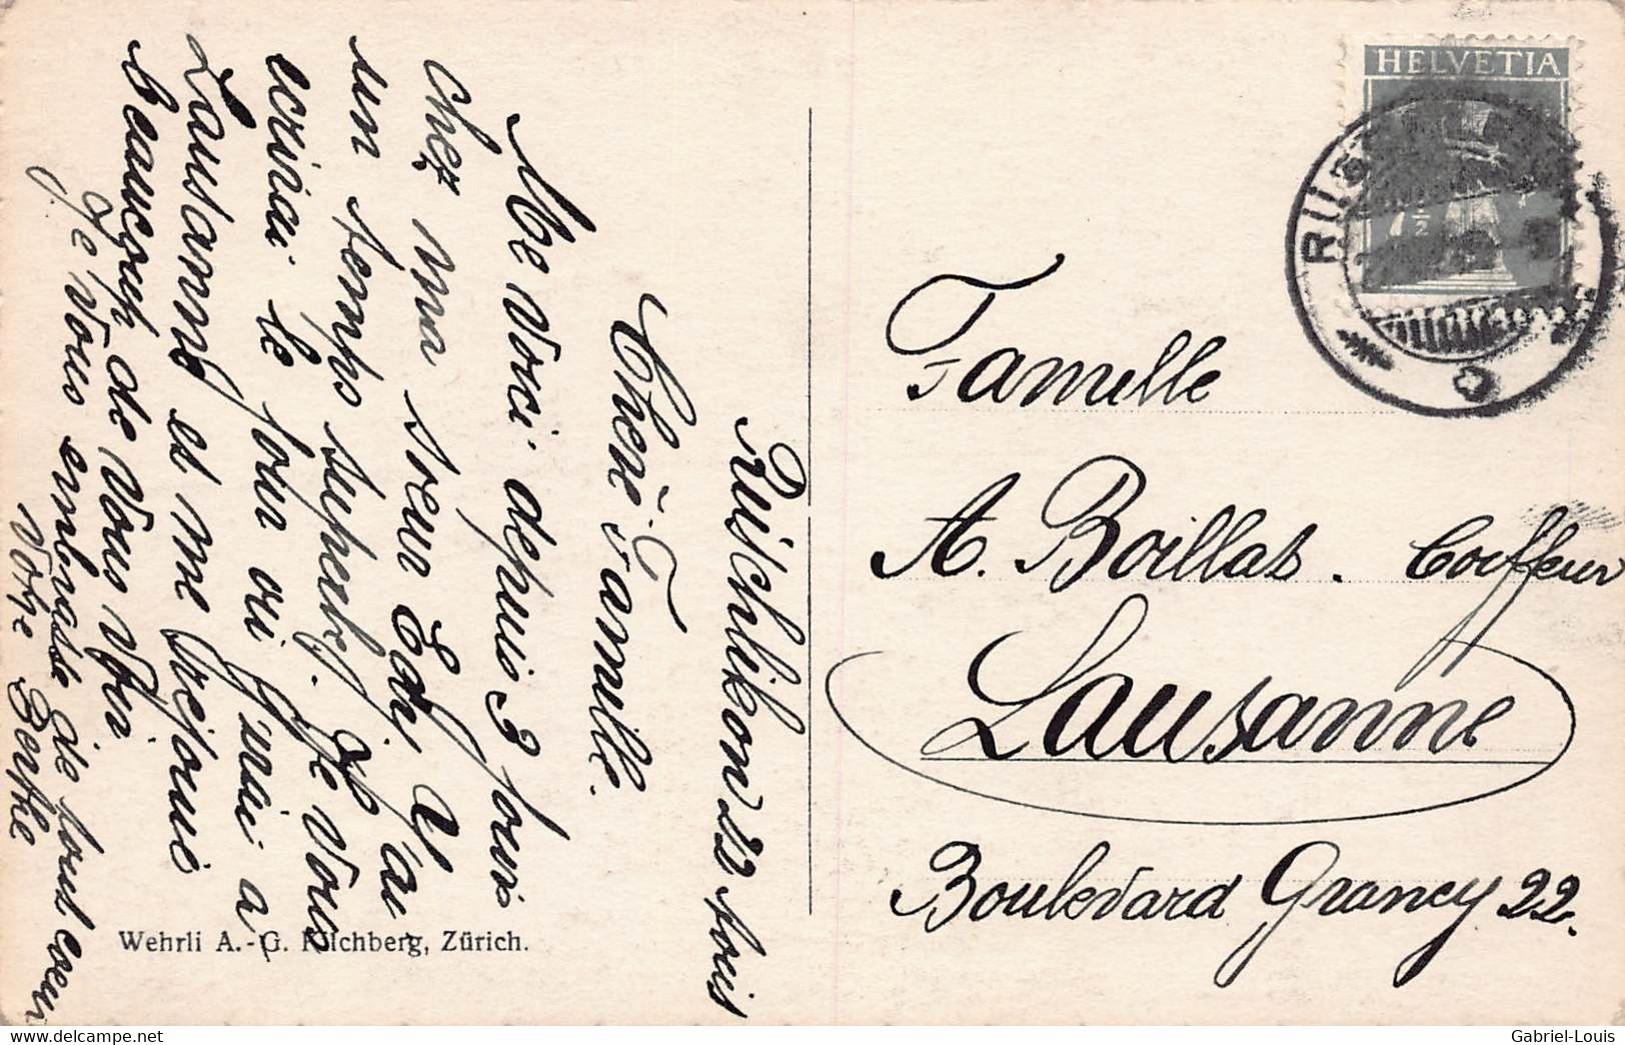 Rüschlikon 22 Jouis
Chère Famille.
Me voici depuis 3 jours
chez ma sœur Edy, Y
un temps superbe. Je vous
ecrirai le jour ou j'irai a
Lausanne et me rejouie
beaucoup de vous voir
Je vous embrasse de tout cœur
Votre Berthe
Wehrli A.-G. Kilchberg, Zürich.
HELVETIA
7½
RÜS
Famille
A. Boillat. Coiffeur
Lausanne
Boulevard Grancy 22.
Gabriel-Louis